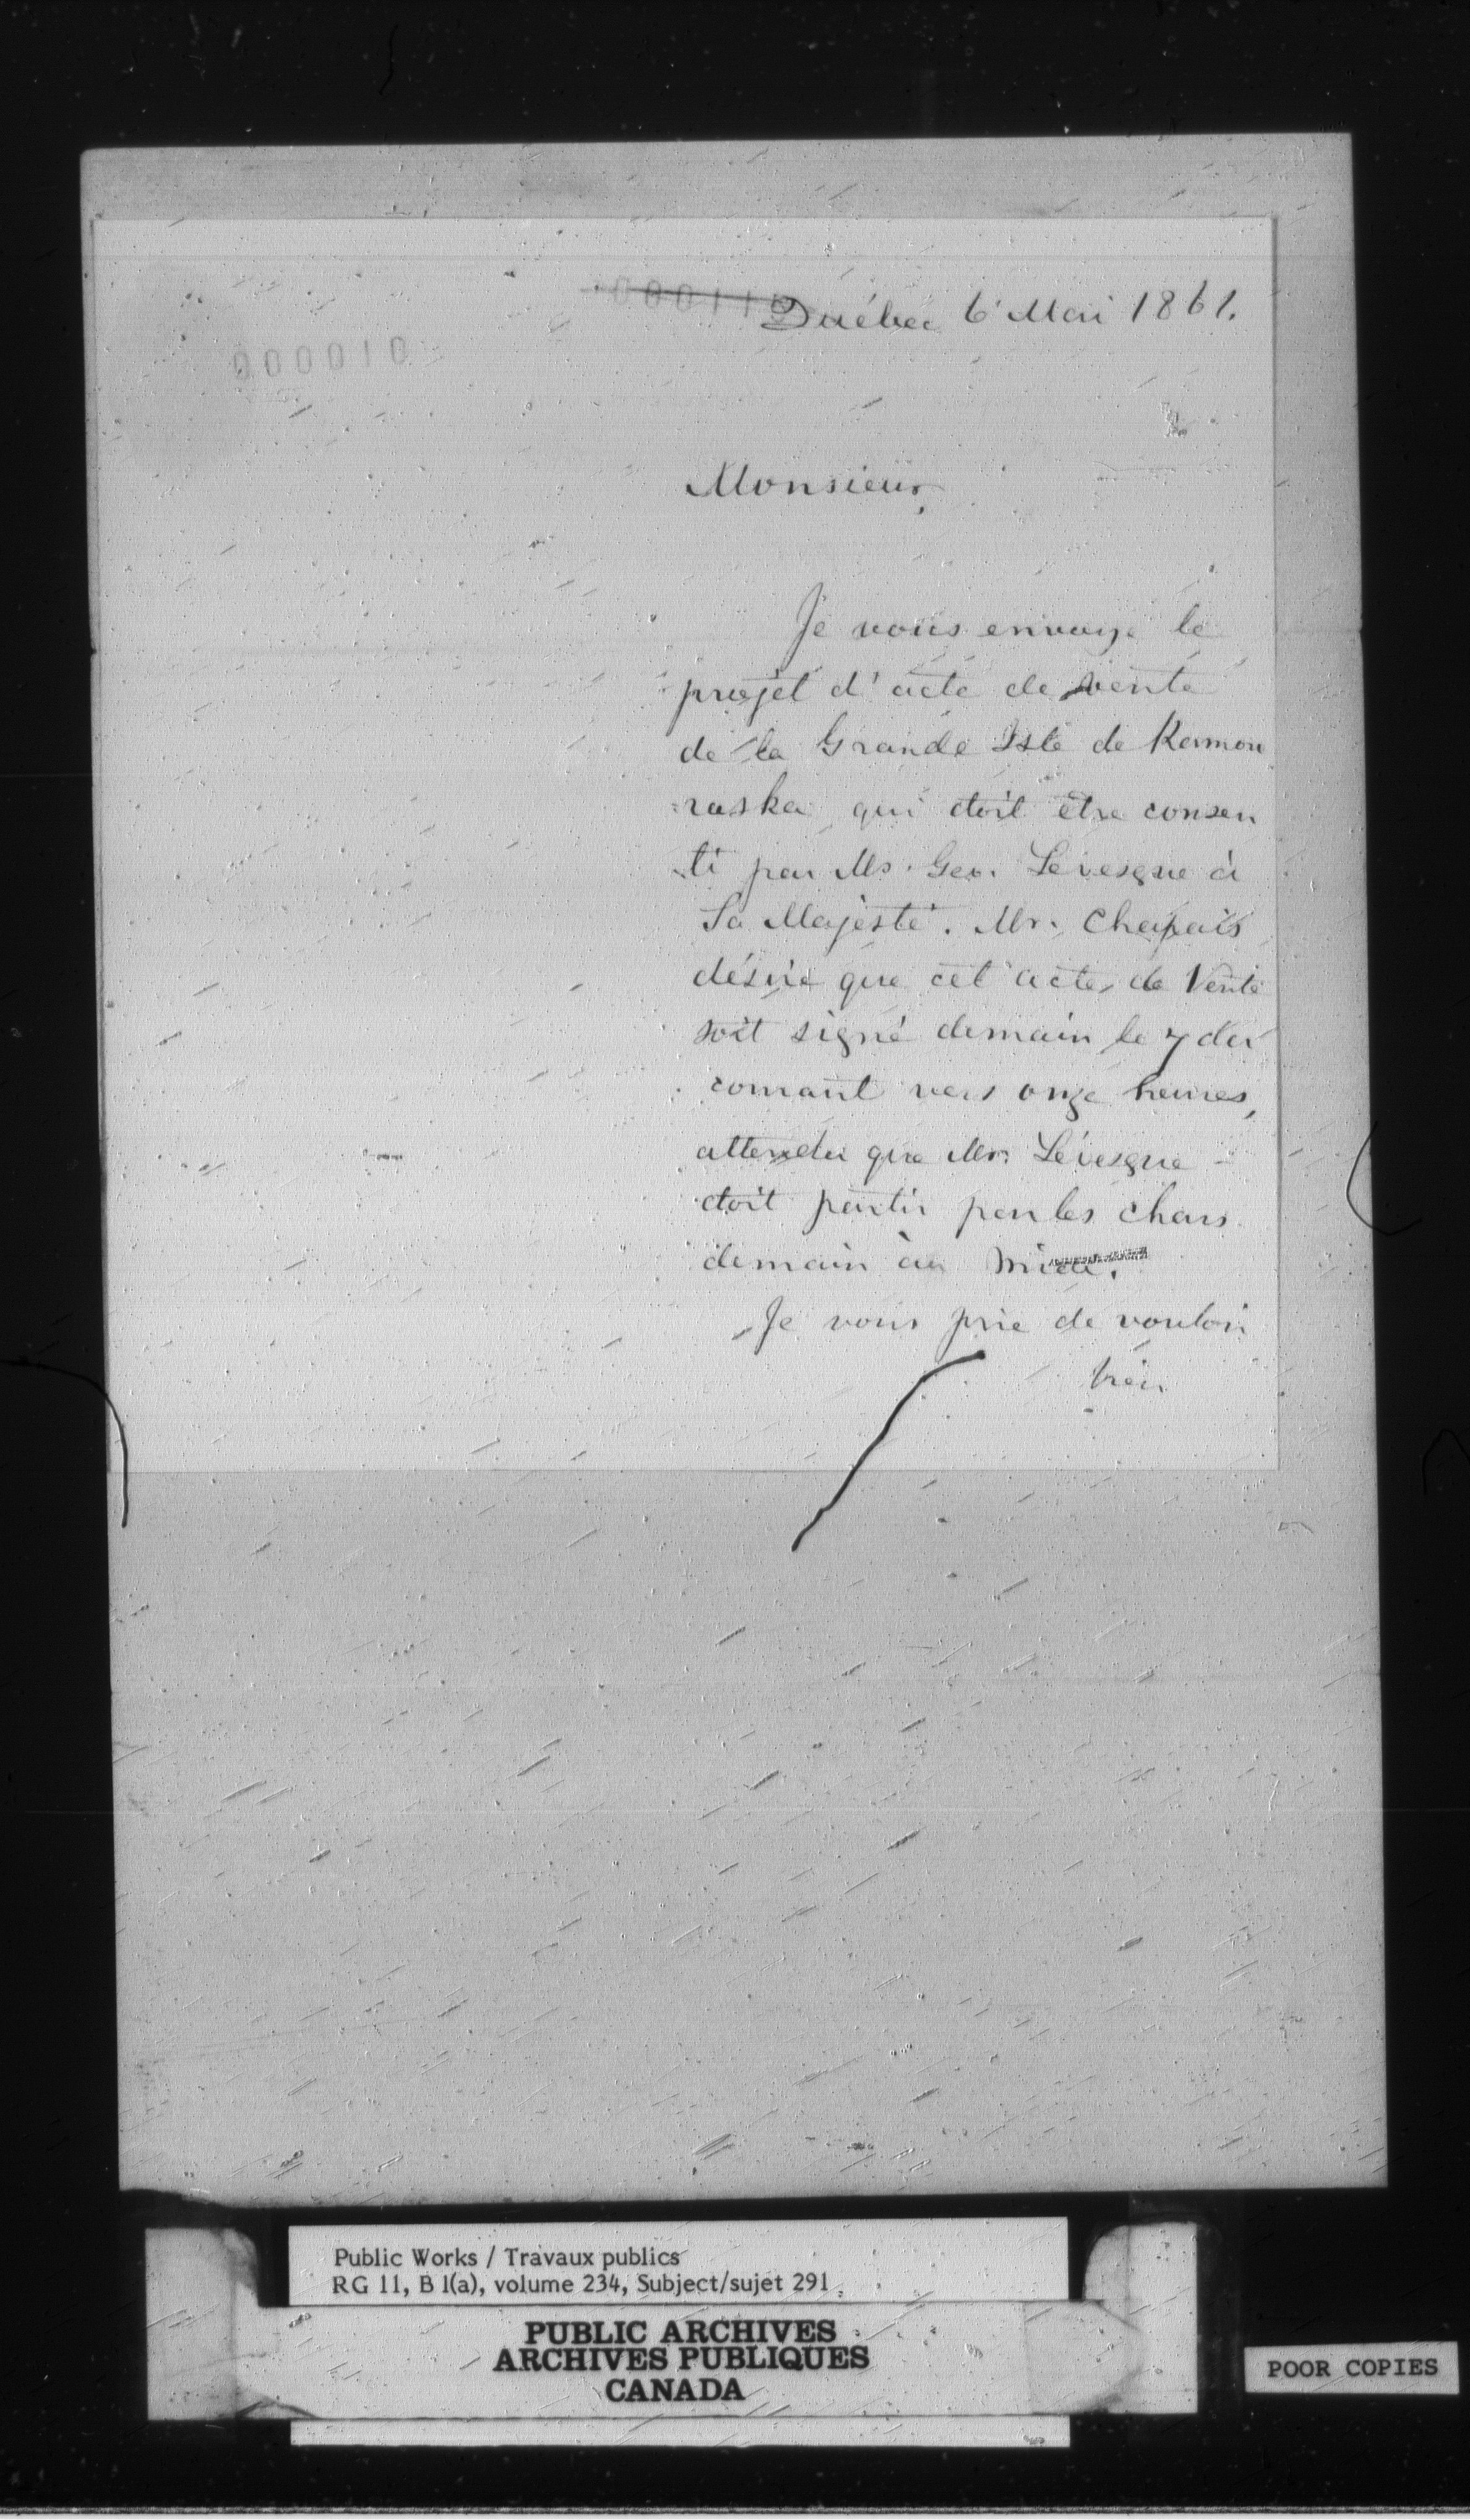 000115
Québec 6 Mai 1861.
000010
Monsieur,
Je vous envoye le
projet d'acte de vente
de la Grande Isle de Kamou
=raska qui doit être consen
ti par Mr. Geo. Levesque à
Sa Majesté. Mr. Chapais
désire que cet acte de Vente
soit signé demain le 7 du
courant vers onze heures,
attendu que Mr. Lévesque
doit partir par les chars
demain au midi.
Je vous prie de vouloir
bien
Public Works / Travaux publics
RG 11, B 1(a), volume 234, Subject/sujet 291
PUBLIC ARCHIVES
ARCHIVES PUBLIQUES
CANADA
POOR COPIES